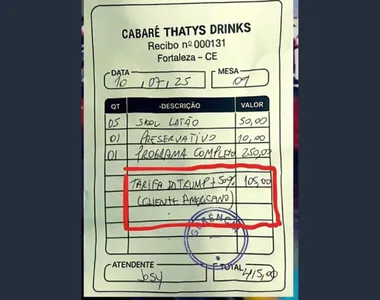 CABARÉ THATYS DRINKS
Recibo nº 000131
Fortaleza - CE
DATA MESA
10, 07, 25 09
QT DESCRIÇÃO VALOR
05 SKOL LATÃO 50,00
01 PRESERVATIVO 10,00
01 PROGRAMA COMPLETO 250,00
TARIFA DTRUMP + 50% 105,00
(CLIENTE AMERICANO)
GERÊNCIA
ATENDENTE TOTAL
Josy 415,00